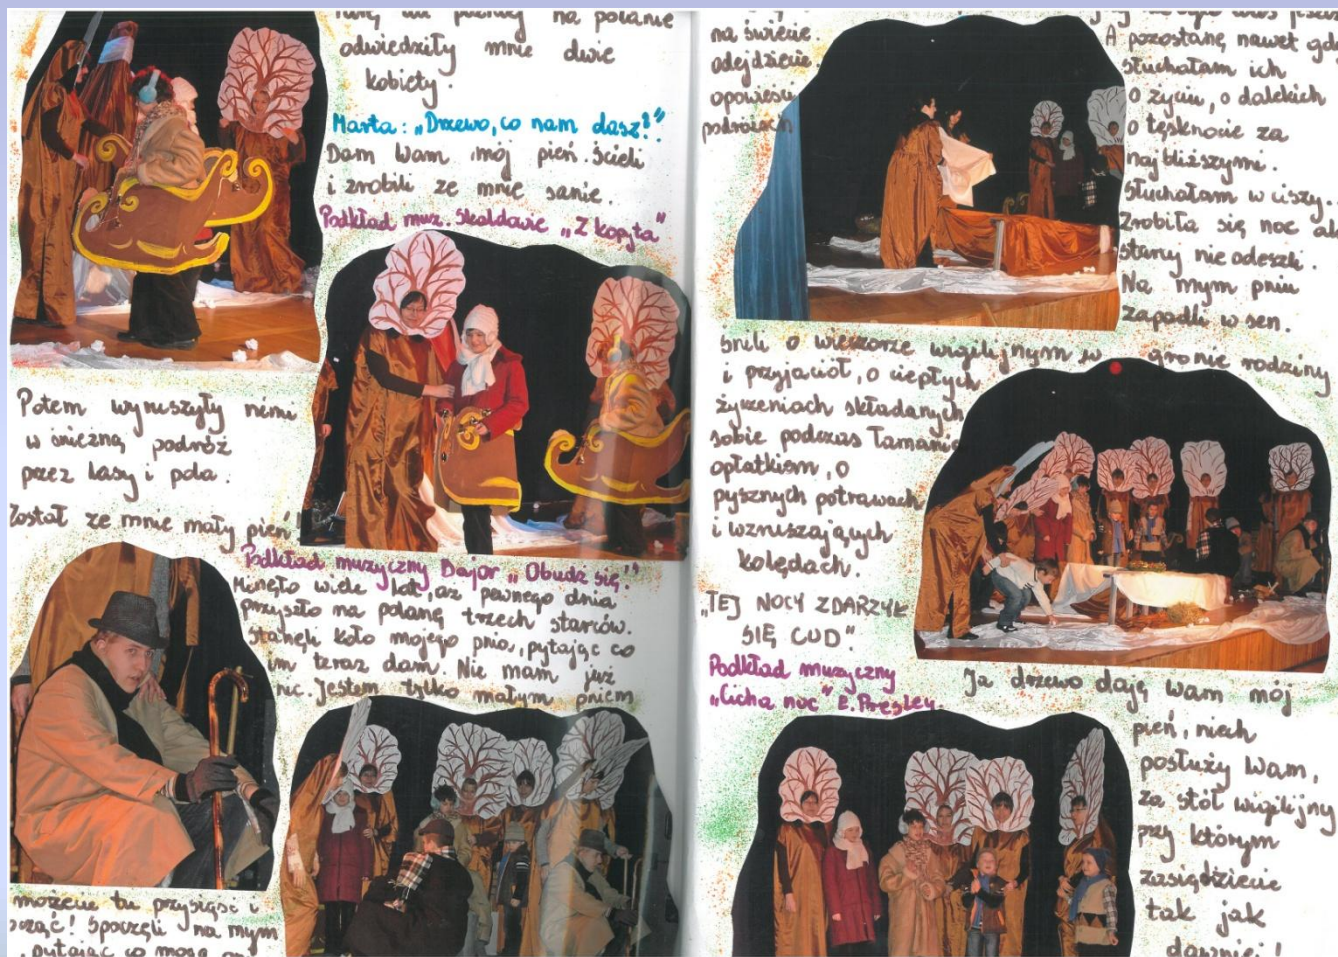 na polanie
odwiedziły mnie dwie
kobiety.
Marta: „Drzewo, co nam dasz!"
Dam Wam mój pień. Ścieli
i zrobili ze mnie sanie.
Podkład muz. Skaldowie „Z kopyta"
Potem wyruszyły nimi
w śnieżną podróż
przez lasy i pola.
Został ze mnie mały pień.
Podkład muzyczny Bajor „Obudź się".
Minęło wiele lat, aż pewnego dnia
przyszło na polanę trzech starców.
Stanęli koło mojego pnia, pytając co
im teraz dam. Nie mam już
nic. Jestem tylko małym pniem
możecie tu przysiąść i
Spoczęli na mym
pytając co mogą
na świecie.
odejdziecie
opowieści
podróżach
A pozostanę nawet gdy
słuchałam ich
o życiu, o dalekich
o tęsknocie za
najbliższymi.
Słuchałam w ciszy.
Zrobiła się noc ale
starcy nie odeszli.
Na mym pniu
zapadli w sen.
Śnili o wieczorze wigilijnym w gronie rodziny
i przyjaciół, o ciepłych
życzeniach składanych
sobie podczas łamania
opłatkiem, o
pysznych potrawach
i wzruszających
kolędach.
„TEJ NOCY ZDARZYŁ
SIĘ CUD"
Podkład muzyczny
„Cicha noc" E. Presley.
Ja drzewo daję Wam mój
pień, niech
posłuży Wam,
za stół wigilijny
przy którym
zasiądziecie
tak jak
dawniej!